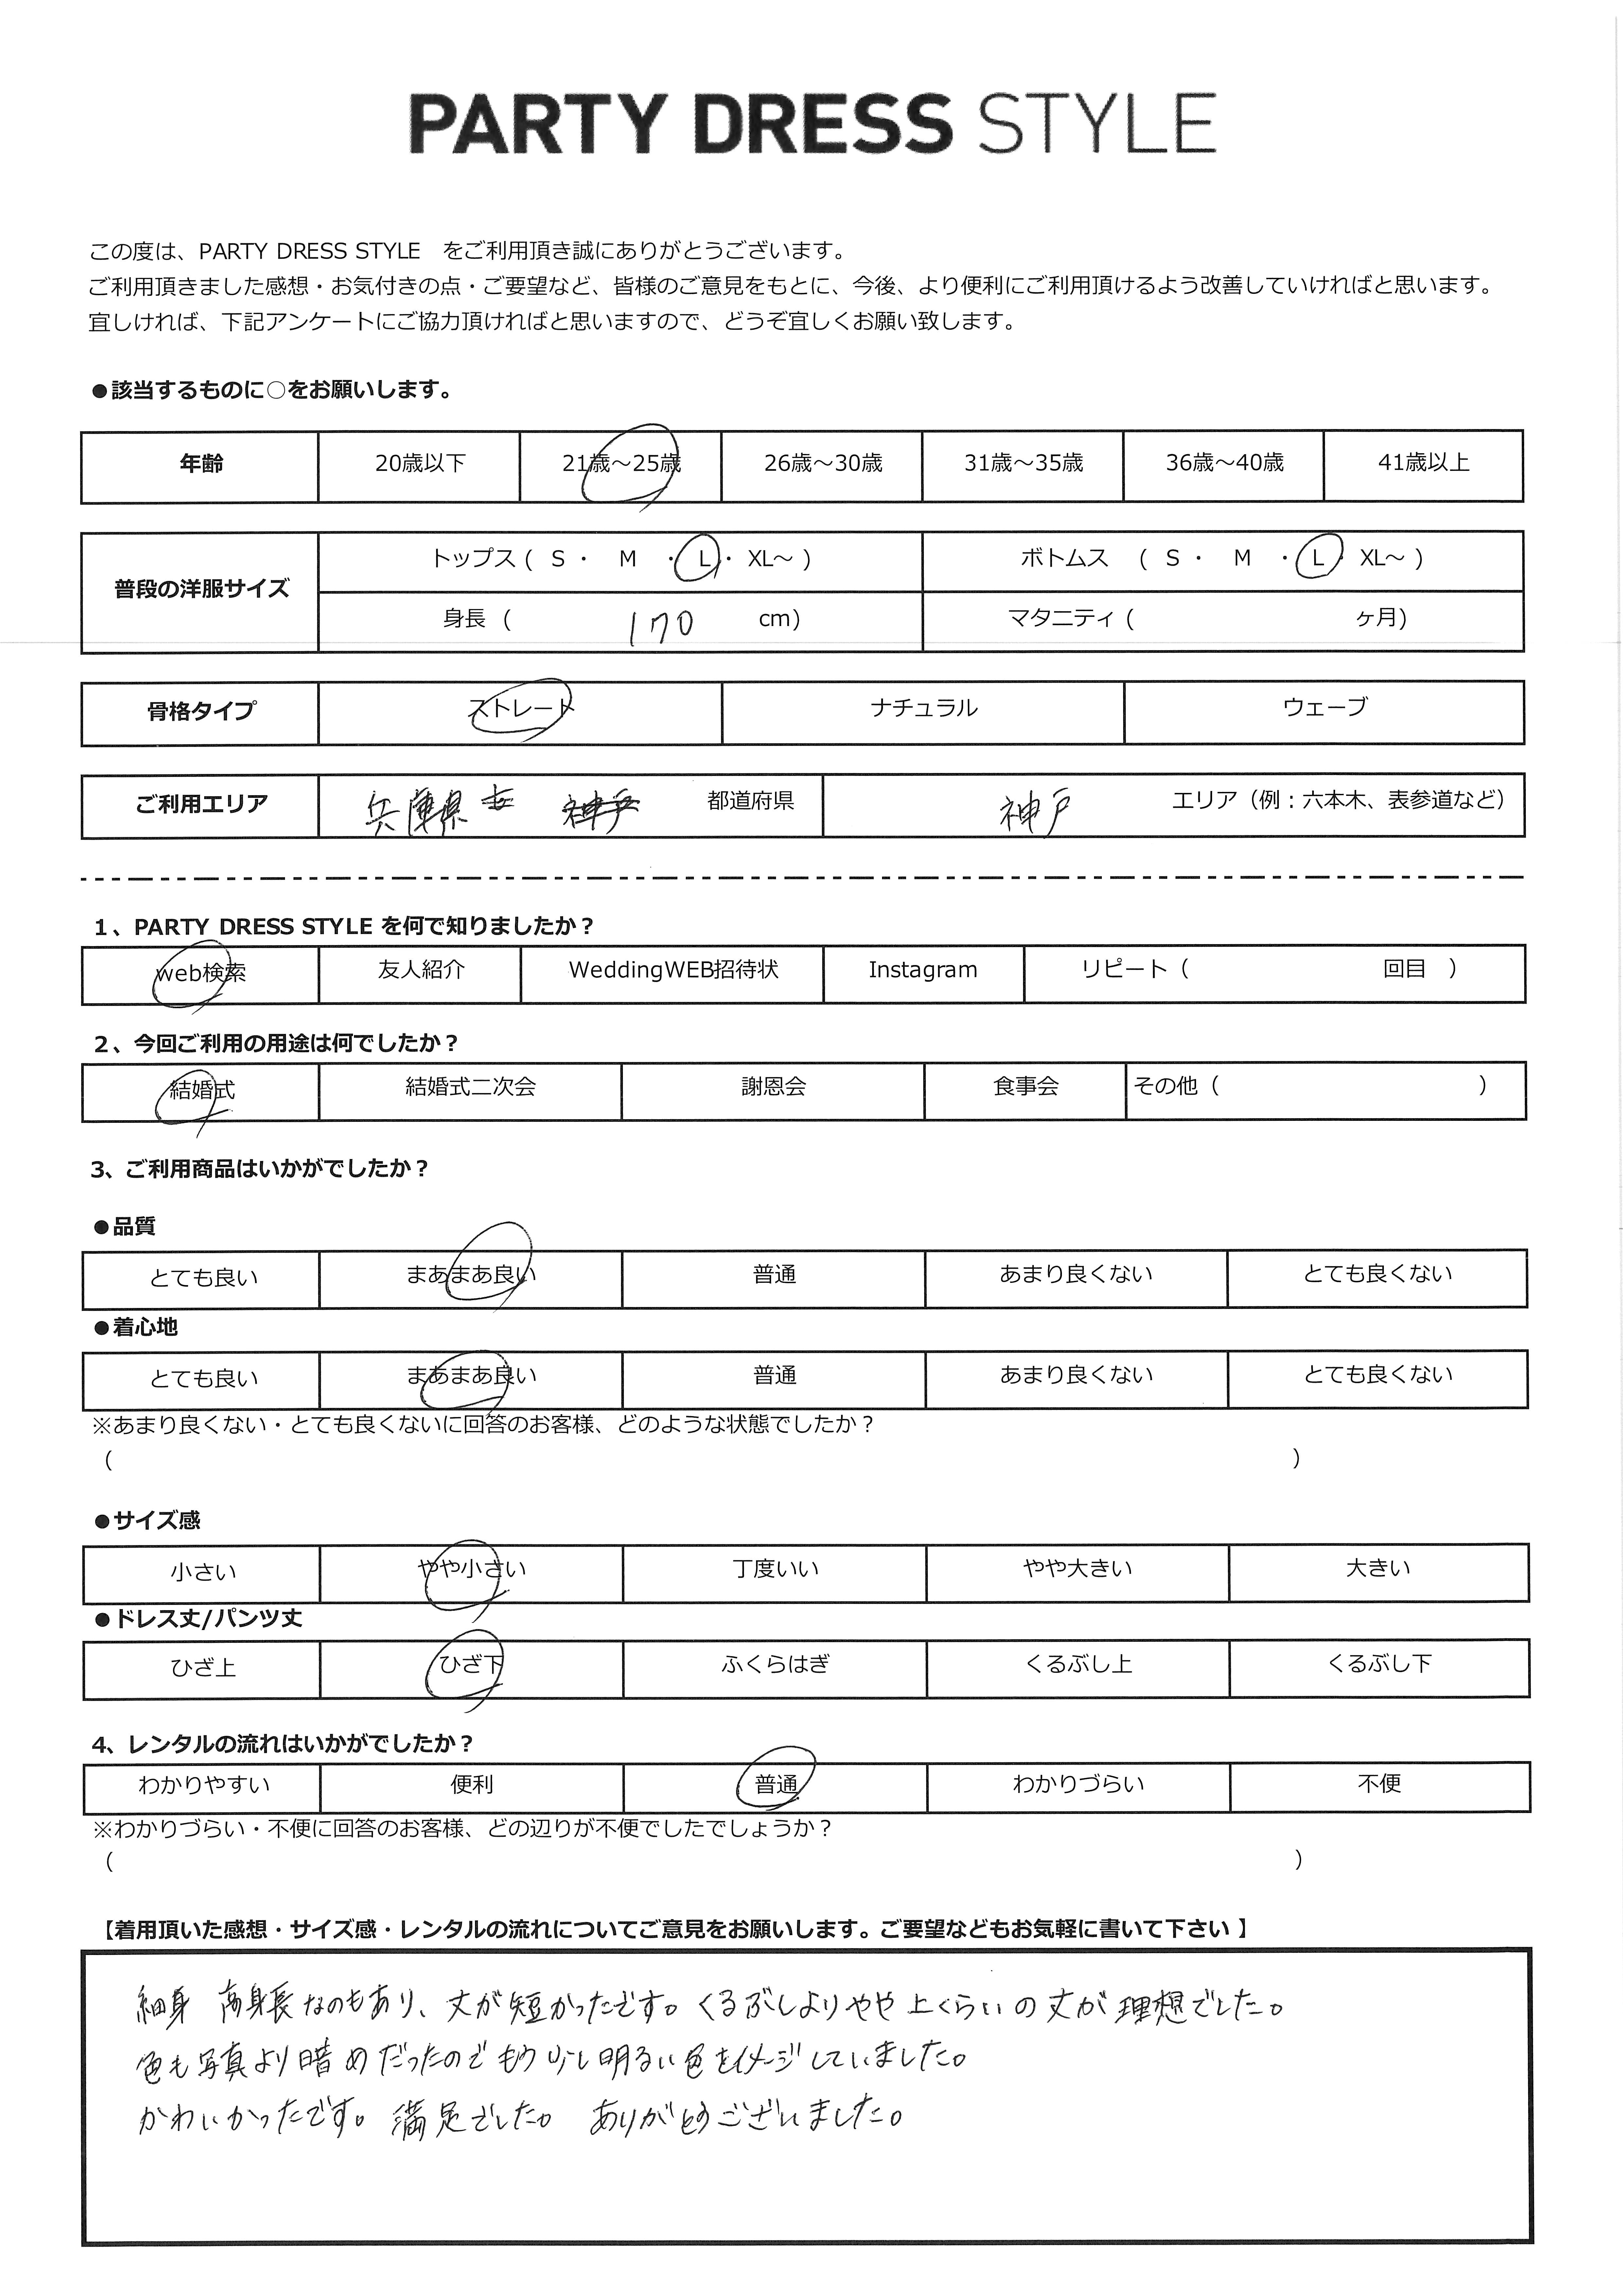 PARTY DRESS STYLE
この度は、PARTY DRESS STYLE　をご利用頂き誠にありがとうございます。
ご利用頂きました感想・お気付きの点・ご要望など、皆様のご意見をもとに、今後、より便利にご利用頂けるよう改善していければと思います。
宜しければ、下記アンケートにご協力頂ければと思いますので、どうぞ宜しくお願い致します。
●該当するものに○をお願いします。
年齢 20歳以下 21歳～25歳 26歳～30歳 31歳～35歳 36歳～40歳 41歳以上
普段の洋服サイズ トップス ( S ・ M ・ L ・ XL～ ) ボトムス ( S ・ M ・ L ・ XL～ )
身長 ( 170 cm) マタニティ ( ヶ月)
骨格タイプ ストレート ナチュラル ウェーブ
ご利用エリア 兵庫県 神戸 都道府県 神戸 エリア（例：六本木、表参道など）
1、PARTY DRESS STYLE を何で知りましたか？
web検索 友人紹介 WeddingWEB招待状 Instagram リピート（ 回目 ）
2、今回ご利用の用途は何でしたか？
結婚式 結婚式二次会 謝恩会 食事会 その他（ ）
3、ご利用商品はいかがでしたか？
●品質
とても良い まあまあ良い 普通 あまり良くない とても良くない
●着心地
とても良い まあまあ良い 普通 あまり良くない とても良くない
※あまり良くない・とても良くないに回答のお客様、どのような状態でしたか？
（ ）
●サイズ感
小さい やや小さい 丁度いい やや大きい 大きい
●ドレス丈/パンツ丈
ひざ上 ひざ下 ふくらはぎ くるぶし上 くるぶし下
4、レンタルの流れはいかがでしたか？
わかりやすい 便利 普通 わかりづらい 不便
※わかりづらい・不便に回答のお客様、どの辺りが不便でしたでしょうか？
（ ）
【着用頂いた感想・サイズ感・レンタルの流れについてご意見をお願いします。ご要望などもお気軽に書いて下さい 】
細身 高身長なのもあり、丈が短かったです。くるぶしよりやや上くらいの丈が理想でした。
色も写真より暗めだったのでもう少し明るい色をイメージしていました。
かわいかったです。満足でした。ありがとうございました。